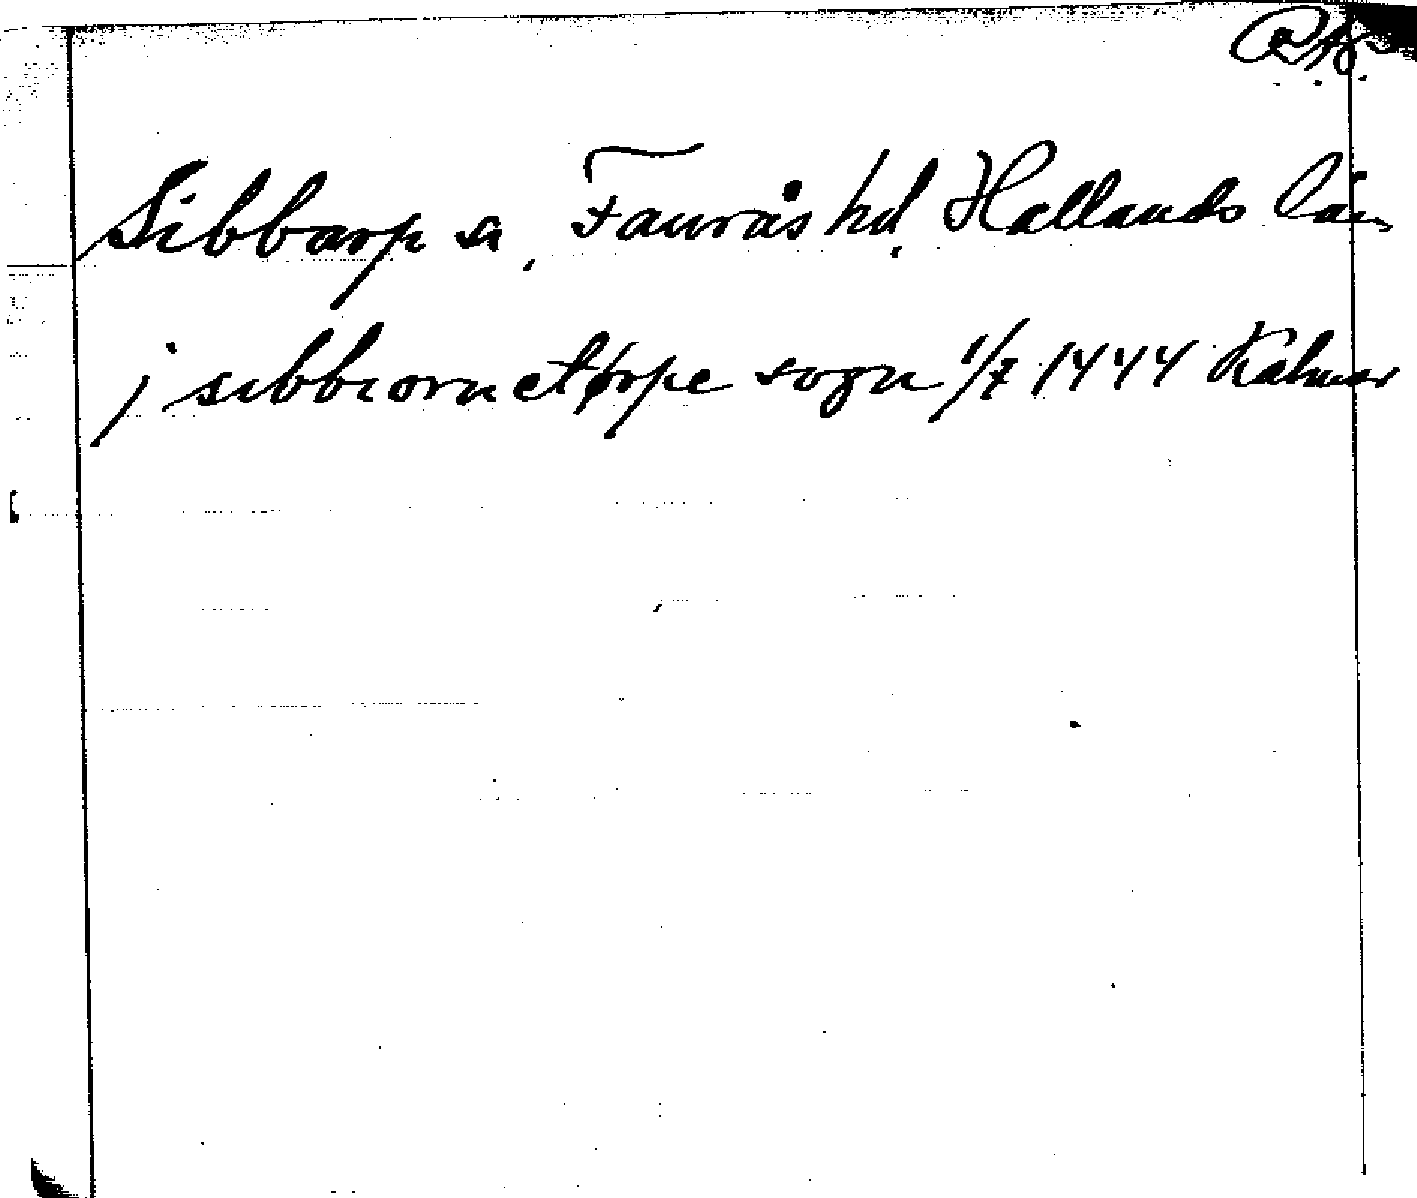 RAp.
Sibbarp sn, Faurås hd, Hallands län
j sibbiornetørpe sogn 1/7 1444 Kalmar